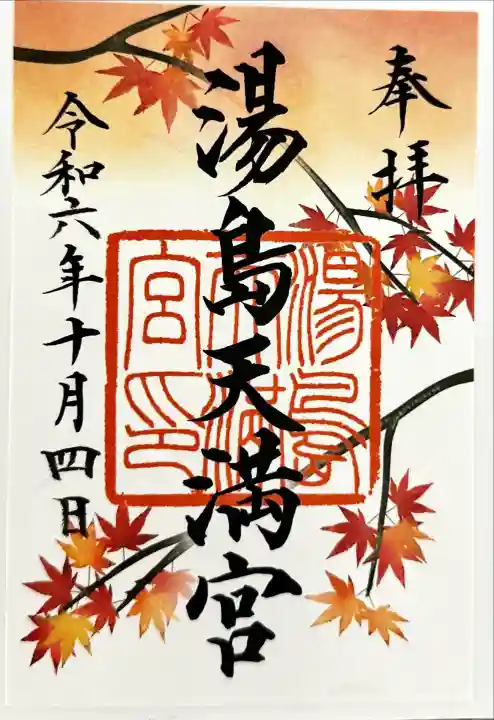 奉拝
湯島天満宮
湯島天満宮印
令和六年十月四日